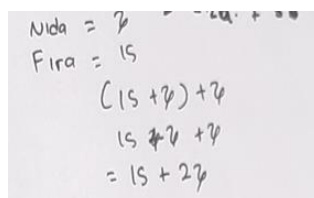 Nida = y
Fira = 15
(15 + y) + y
15 + y + y
= 15 + 2y